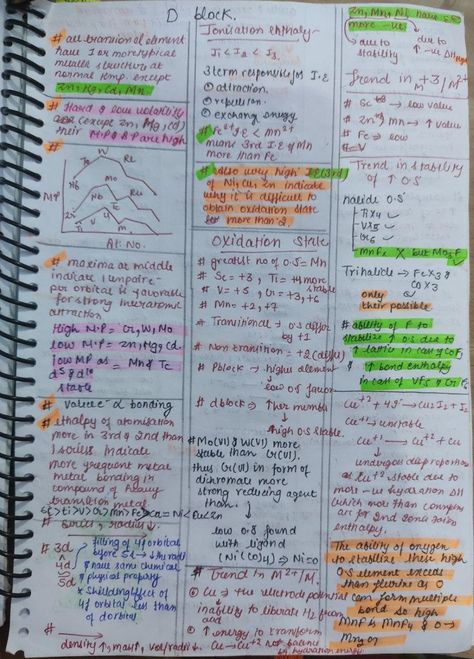 D block.
# all transition of element
have 1 or more typical
metallic structure at
normal temp except
Zn, Hg, Cd, Mn.
# Hard & low volatility
(except Zn, Hg, Cd)
their M.P & B.P are high
MP
W
Re
Ta
Mo
Nb
Ru
Cr
Ti
V
Tc
At. No.
# maxima at middle
indicate 1 unpaire-
per orbital is favorable
for strong interatomic
attraction.
High M.P = Cr, W, Mo
low M.P = Zn, Hg, Cd.
low MP as = Mn & Tc
d5 & d10
stable
# valence α bonding
# ethalpy of atomisation
more in 3rd & 2nd than
1 series indicate
more frequent metal
metal bonding in
compound of heavy
transition metal
# series, radius ↓.
# 3d
4d
5d
filling of 4f orbital
before 5d → the radii
# have same chemical
& physical property
* Shielding effect of
4f orbital less than
of d orbital
density ↑, mass↑, vol/radius↓.
Ionisation enthalpy-
I1 < I2 < I3.
3 term responsible for I.E
① attraction.
② repulsion.
③ exchange energy
# Fe2+ I.E < Mn2+
means 3rd I.E of Mn
more than Fe
# Also very high I.E (3rd)
of Ni, Cu, Zn indicate
why it is difficult to
obtain oxidation state
more than 2.
Oxidation State
# greatest no of O.S = Mn
# Sc = +3, Ti = +4 more stable
# V = +5, Cr = +3, +6
# Mn = +2, +7
# Transitional → O.S differ
by +1
# Non transition = +2 (differ)
# P block → higher element
↓
low O.S favor
# d block → ↑her member
↓
high O.S stable.
# Mo(VI) & W(VI) more
stable than Cr(VI).
thus Cr(VI) in form of
dichromate more
strong reducing agent
than
↓
low O.S found
with ligand
(Ni(CO)4) → Ni=0
# Trend in M2+/M.
① Cu → +ve electrode potential
inability to liberate H2 from
acid
② ↑ energy to transform
Cu → Cu+2 not balance
by hydration energy
Zn, Mn, Ni, have
more -ve
↓
due to
stability
↓
due to
↑ -ve ΔHhyd
Trend in M+3/M2+
# Sc+3 → low value
# Zn+3 → ↑ value
# Fe → low
# V
Trend in stability
of ↑ O.S
halide O.S
TiX4
VF5
CrF6
Trihalide → FeX3 &
CoX3
only
their possible.
# ability of F to
stabilize ↑ O.S due to
↑ lattice in case of CoF3
& ↑ bond enthalpy
in case of VF5 & CrF6
Cu+2 + 4I- → Cu2I2 + I2
Cu+1 → unstable
Cu+1 → Cu+2 + Cu
↓
undergoes disproportion
Cu+2 stable due to
most -ve hydration ΔH
which more than compens
ate for 2nd ionisation
enthalpy.
The ability of oxygen
to stabilize these high
O.S element exceeds
than fluorine as O
can form multiple
bond so high
MnF is MnF4 & O →
Mn2O7